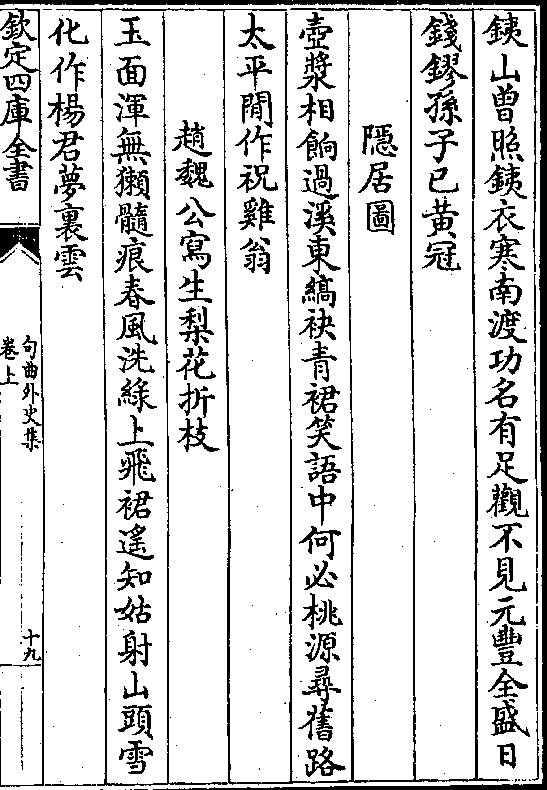 銕山曽照銕衣寒南渡功名有足觀不見元豐全盛日
錢鏐孫子已黄冠
隱居圖
壺漿相餉過溪東縞袂青裙笑語中何必桃源尋舊路
太平閒作祝雞翁
趙魏公寫生梨花折枝
玉面渾無獺髓痕春風洗綠上飛裙遙知姑射山頭雪
化作楊君夢裏雲
欽定四庫全書
句曲外史集
卷上
十九